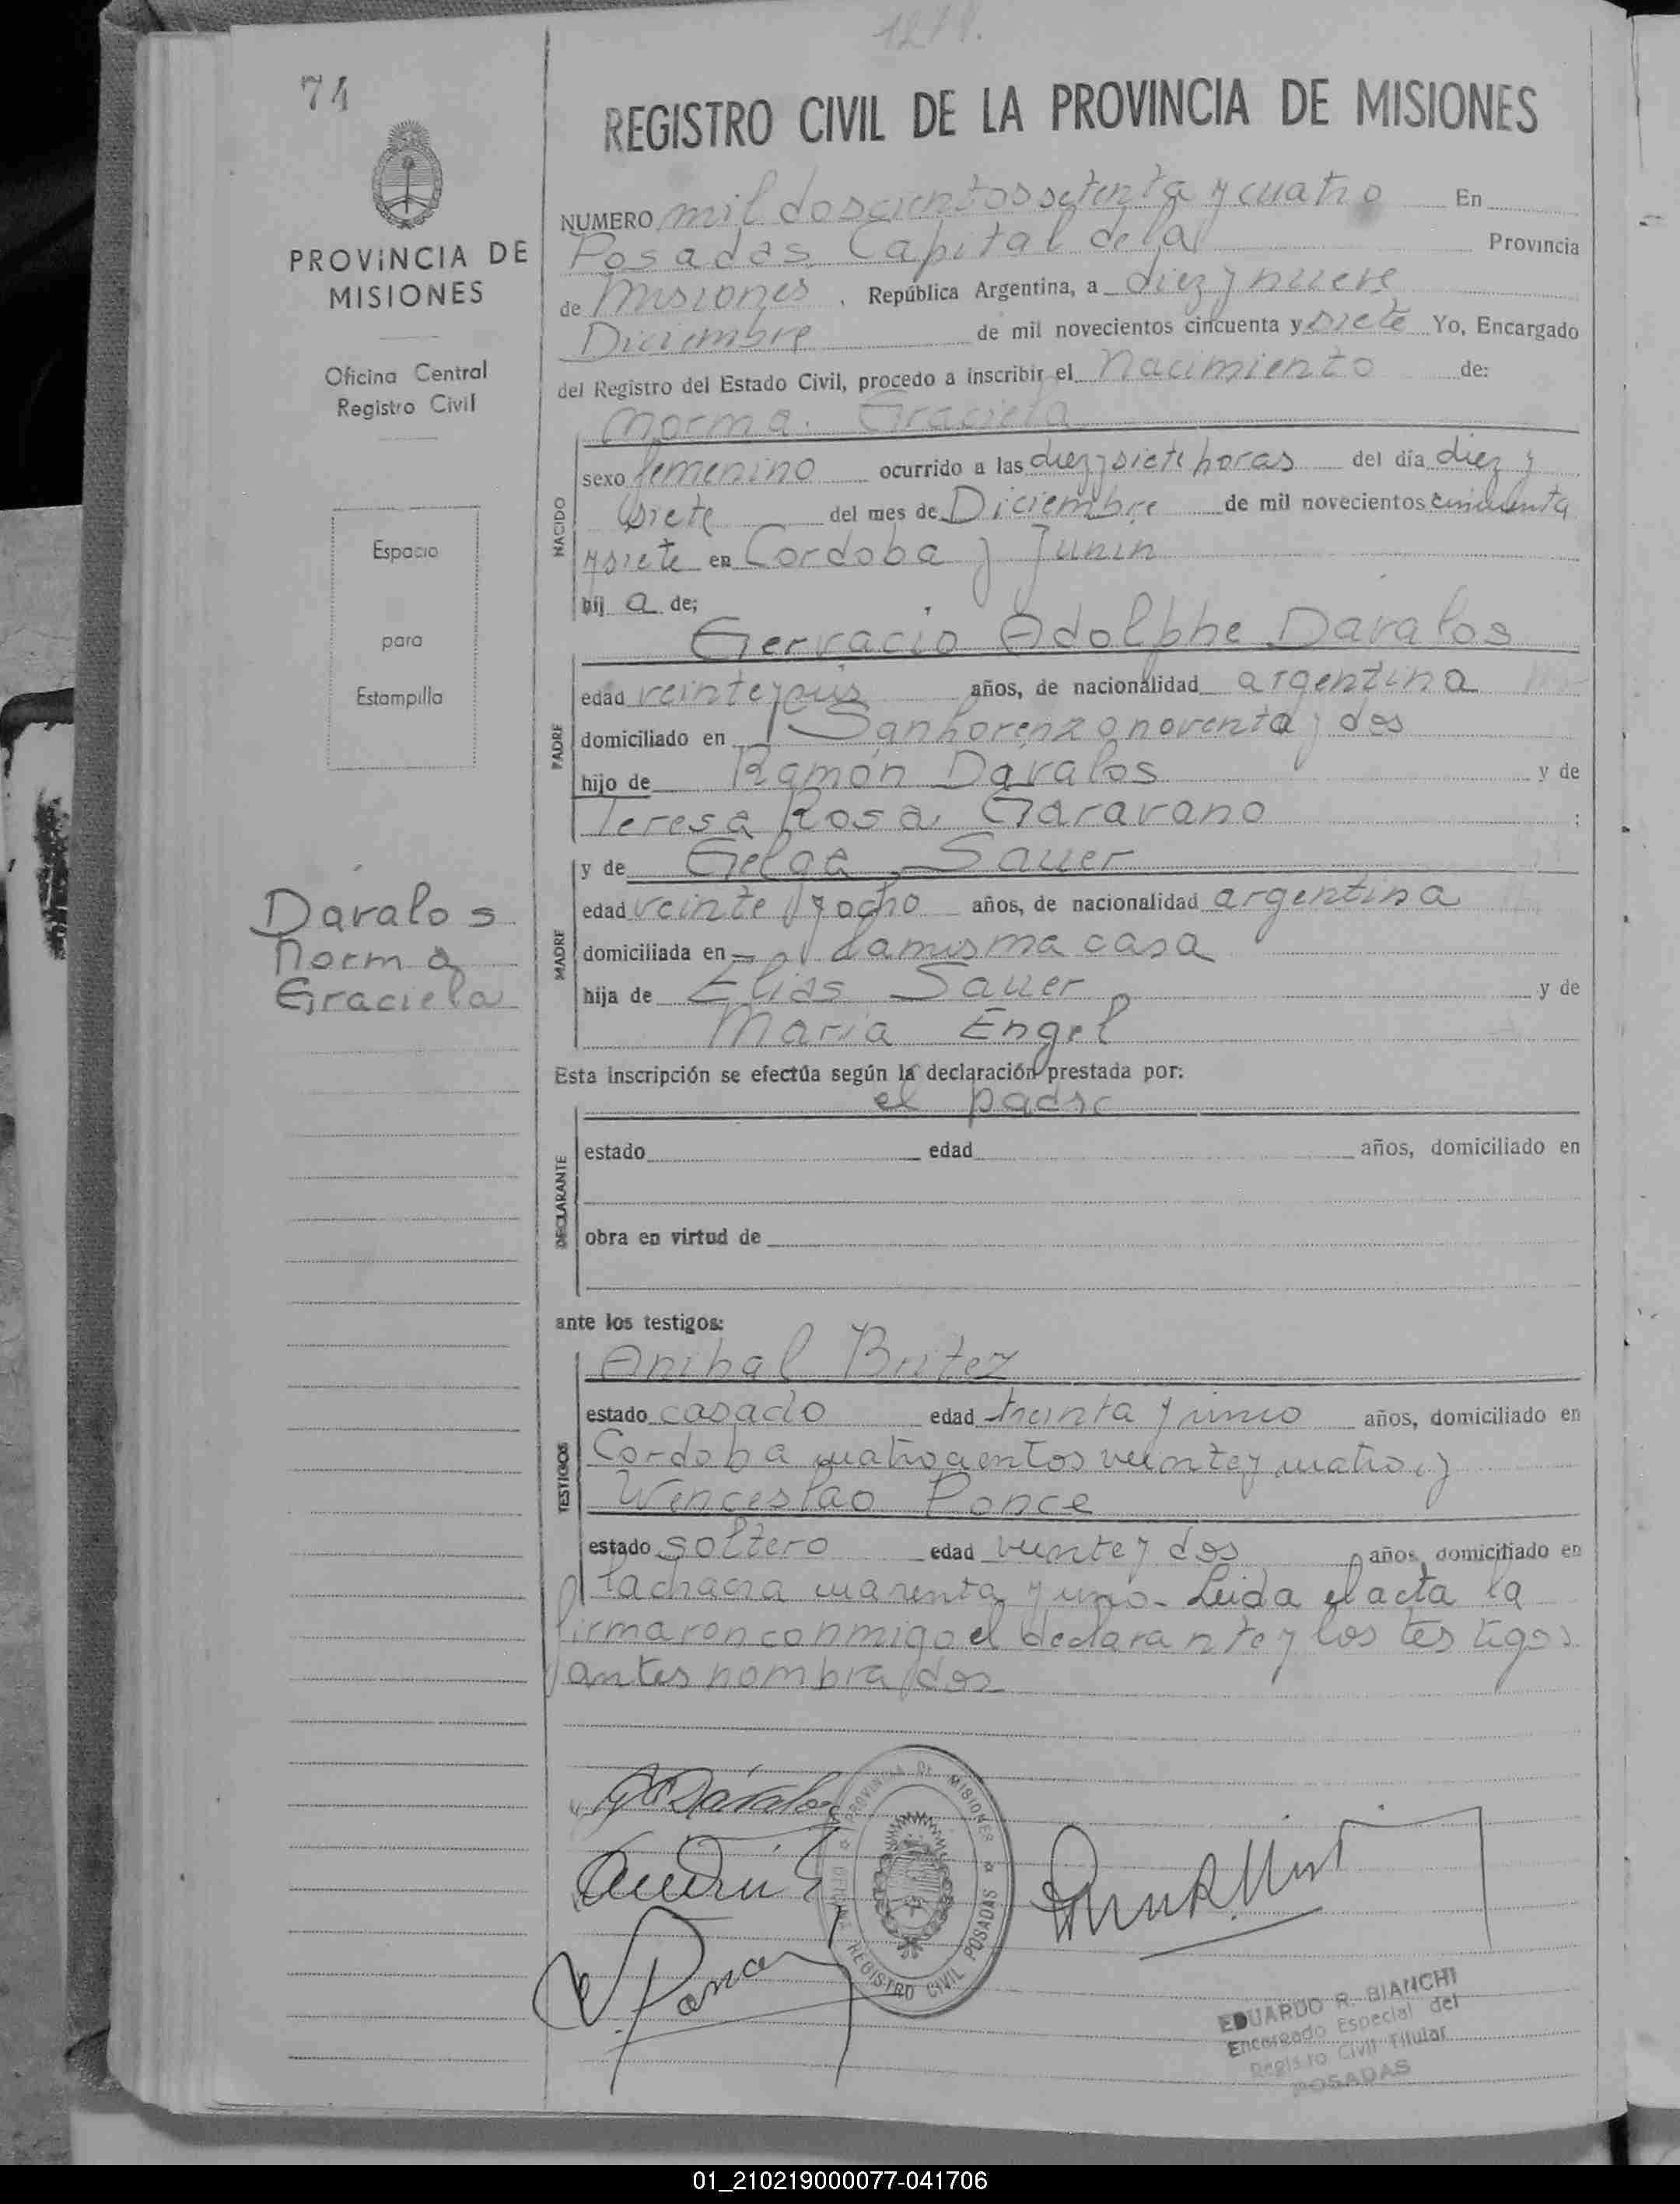 1274.
74
REGISTRO CIVIL DE LA PROVINCIA DE MISIONES
PROVINCIA DE
MISIONES
Oficina Central
Registro Civil
Espacio
para
Estampilla
Davalos
Norma
Graciela
NUMERO mil doscientos setenta y cuatro En
Posadas Capital de la Provincia
de Misiones, República Argentina, a diez y nueve
Diciembre de mil novecientos cincuenta y siete Yo, Encargado
del Registro del Estado Civil, procedo a inscribir el Nacimiento de:
Norma Graciela
NACIDO
sexo femenino ocurrido a las diez y siete horas del día diez y
siete del mes de Diciembre de mil novecientos cincuenta
y siete en Cordoba y Junin
hij a de;
Gervacio Adolphe Davalos
PADRE
edad veinte y años, de nacionalidad argentina
domiciliado en San Lorenzo noventa y dos
hijo de Ramón Davalos y de
Teresa Rosa Garavano ;
y de Gelga Sauer
MADRE
edad veinte y ocho años, de nacionalidad argentina
domiciliada en la misma casa
hija de Elias Sauer y de
Maria Engel
Esta inscripción se efectúa según la declaración prestada por:
el padre
DECLARANTE
estado edad años, domiciliado en
obra en virtud de
ante los testigos:
Anibal Britez
TESTIGOS
estado casado edad treinta y años, domiciliado en
Cordoba cuatrocientos veinte y cuatro, y
Wenceslao Ponce
estado soltero edad veinte y dos años, domiciliado en
la chacra cuarenta y uno - Leida el acta la
firmaron conmigo el declarante y los testigos
antes nombrados
G Dávalos
W Ponce
PROVINCIA DE MISIONES
OFICINA REGISTRO CIVIL POSADAS
EDUARDO R. BIANCHI
Encargado Especial del
Registro Civil Titular
POSADAS
01_210219000077-041706